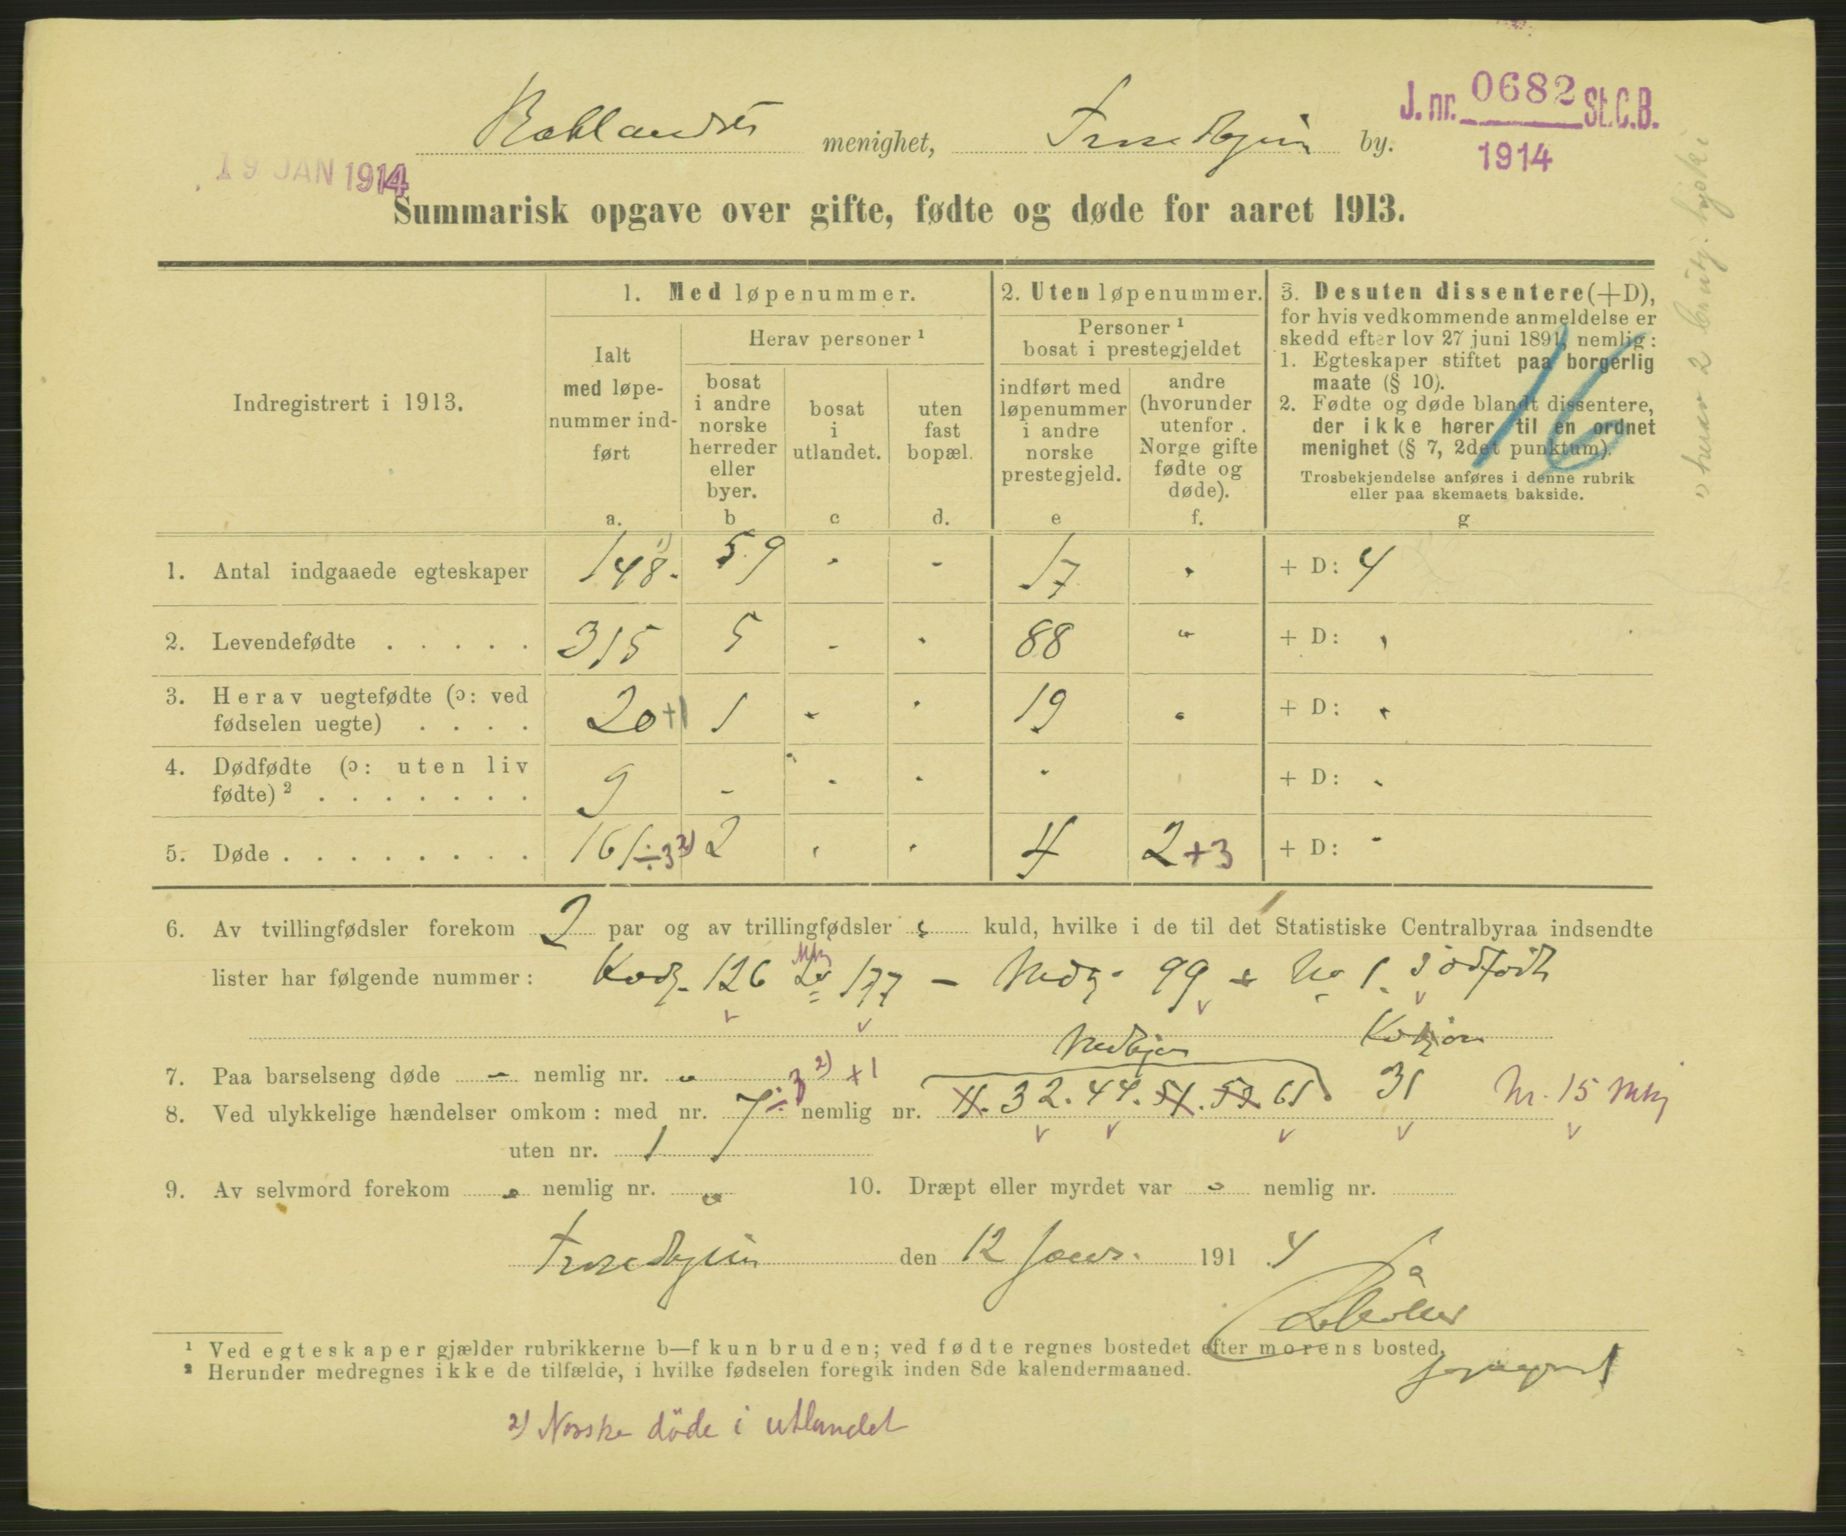 J. nr. 0682 St.C.B.
1914
19 JAN 1914
Baklandets menighet, Trondhjem by.
Summarisk opgave over gifte, fødte og døde for aaret 1913.
Indregistrert i 1913.
1. Med løpenummer.
Ialt med løpenummer indført
a.
Herav personer ¹
bosat i andre norske herreder eller byer.
b
bosat i utlandet.
c
uten fast bopæl.
d.
2. Uten løpenummer.
Personer ¹ bosat i prestegjeldet
indført med løpenummer i andre norske prestegjeld.
e
andre (hvorunder utenfor Norge gifte fødte og døde).
f.
3. Desuten dissentere (+D),
for hvis vedkommende anmeldelse er
skedd efter lov 27 juni 1891, nemlig:
1. Egteskaper stiftet paa borgerlig
maate (§ 10).
2. Fødte og døde blandt dissentere,
der ikke hører til en ordnet
menighet (§ 7, 2det punktum).
Trosbekjendelse anføres i denne rubrik
eller paa skemaets bakside.
g
16
1. Antal indgaaede egteskaper 148 ¹) 59 - - 17 - + D: 4
2. Levendefødte . . . . . 315 5 - - 88 - + D: -
3. Herav uegtefødte (ɔ: ved
fødselen uegte) . . . . 20+1 1 - - 19 - + D: -
4. Dødfødte (ɔ: uten liv
fødte) ² . . . . . . . 9 - - - - + D: -
5. Døde . . . . . . . . 161÷3 ²) 2 - - 4 2+3 + D: -
6. Av tvillingfødsler forekom 2 par og av trillingfødsler kuld, hvilke i de til det Statistiske Centralbyraa indsendte
lister har følgende nummer: 126 177 - 99 + No 1 dødfødte
7. Paa barselseng døde - nemlig nr. -
8. Ved ulykkelige hændelser omkom: med nr. 7÷3 ²) +1 nemlig nr. 32. 44. 54. 59. 61 31 Nr. 15 Mkj
uten nr. 1
9. Av selvmord forekom - nemlig nr. - 10. Dræpt eller myrdet var - nemlig nr.
Trondhjem den 12 Janr. 1914
¹ Ved egteskaper gjælder rubrikkerne b—f kun bruden; ved fødte regnes bostedet efter morens bosted.
² Herunder medregnes ikke de tilfælde, i hvilke fødselen foregik inden 8de kalendermaaned.
2) Norske döde i utlandet